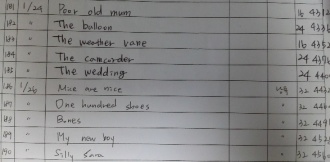 181 1/24 Poor old mum 16 4312
182 " The balloon 24 4336
183 " The weather vane 16 4352
184 " The camcorder 24 4376
185 " The wedding 24 440
186 1/26 Mice are nice 32 443
187 " One hundred shoes " 32 446
188 " Bones " 32 449
189 " My new boy " 32 452
190 " Silly Sara " 32 456